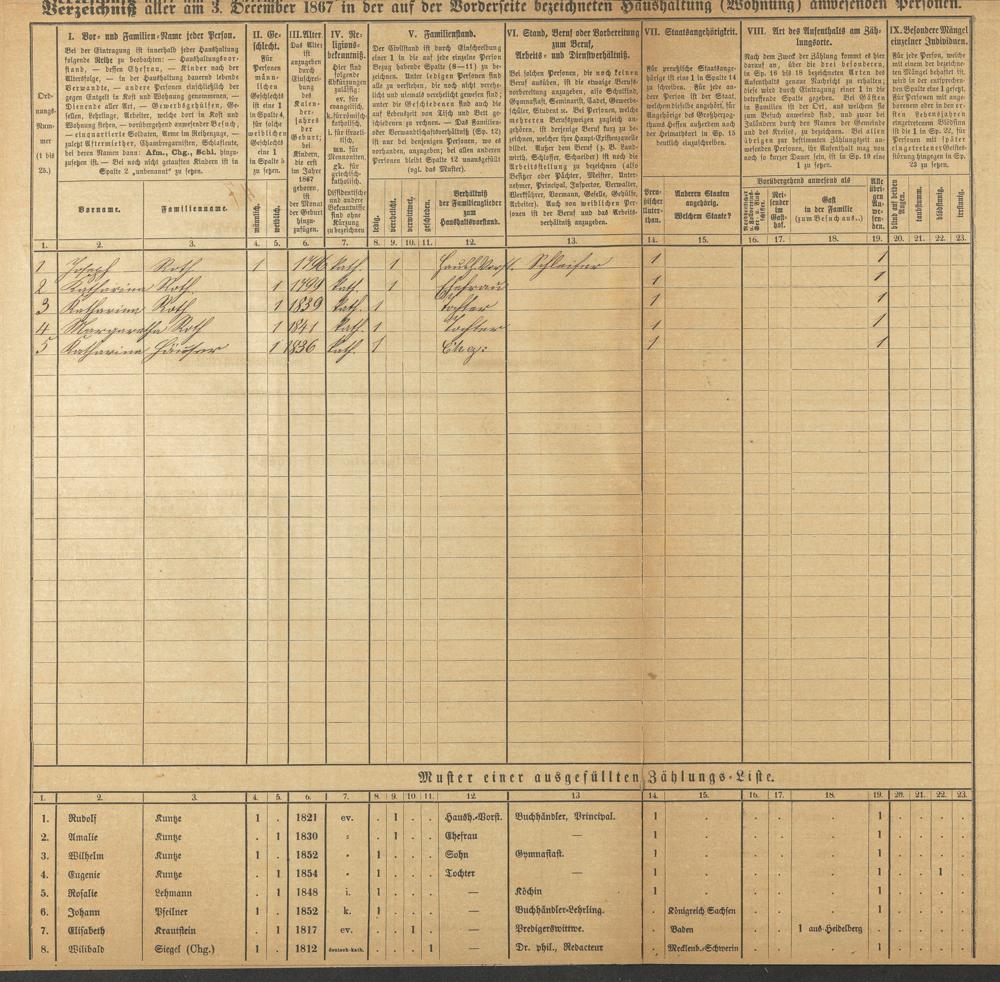 Verzeichniß aller am 3. December 1867 in der auf der Vorderseite bezeichneten Haushaltung (Wohnung) anwesenden Personen.
Ord-
nungs-
Num-
mer
(1 bis
25.)
I. Vor- und Familien-Name jeder Person.
Bei der Eintragung ist innerhalb jeder Haushaltung
folgende Reihe zu beobachten: — Haushaltungsvor-
stand, — dessen Ehefrau, — Kinder nach der
Altersfolge, — in der Haushaltung dauernd lebende
Verwandte, — andere Personen einschließlich der
gegen Entgelt in Kost und Wohnung genommenen, —
Dienende aller Art, — Gewerbsgehülfen, Ge-
sellen, Lehrlinge, Arbeiter, welche dort in Kost und
Wohnung stehen, — vorübergehend anwesender Besuch,
— einquartierte Soldaten, Arme im Reihenzuge, —
zuletzt Aftermiether, Chambregarnisten, Schlafleute,
bei deren Namen dann: Afm., Chg., Schl. hinzu-
zusetzen ist. — Bei noch nicht getauften Kindern ist in
Spalte 2 „unbenannt" zu setzen.
Vorname. Familienname.
II. Ge-
schlecht.
Für
Personen
männ-
lichen
Geschlechts
ist eine 1
in Spalte 4,
für solche
weiblichen
Geschlechts
eine 1
in Spalte 5
zu setzen.
männlich. weiblich.
III. Alter.
Das Alter
ist
anzugeben
durch
Einschrei-
bung
des
Kalen-
der-
jahres
der
Geburt;
bei
Kindern,
die erst
im Jahre
1867
geboren,
ist
der Monat
der Geburt
hinzu-
zufügen.
IV. Re-
ligions-
bekenntniß.
Hier sind
folgende
Abkürzungen
zulässig:
ev. für
evangelisch,
k. für römisch-
katholisch,
i. für israeliti-
sch,
mn. für
Mennoniten,
gk. für
griechisch-
katholisch.
Dissidentische
und andere
Bekenntnisse
sind ohne
Kürzung
zu bezeichnen
V. Familienstand.
Der Civilstand ist durch Einschreibung
einer 1 in die auf jede einzelne Person
Bezug habende Spalte (8—11) zu be-
zeichnen. Unter ledigen Personen sind
alle zu verstehen, die noch nicht verehe-
licht und niemals verehelicht gewesen sind;
unter die Geschiedenen sind auch die
auf Lebenszeit von Tisch und Bett ge-
schiedenen zu rechnen. — Das Familien-
oder Verwandtschaftsverhältniß (Sp. 12)
ist nur bei denjenigen Personen, wo es
vorhanden, anzugeben; bei allen anderen
Personen bleibt Spalte 12 unausgefüllt
(vgl. das Muster).
ledig. verehelicht. verwittwet. geschieden.
Verhältniß
der Familienglieder
zum
Haushaltsvorstand.
VI. Stand, Beruf oder Vorbereitung
zum Beruf,
Arbeits- und Dienstverhältniß.
Bei solchen Personen, die noch keinen
Beruf ausüben, ist die etwaige Berufs-
vorbereitung anzugeben, also Schulkind,
Gymnasiast, Seminarist, Cadet, Gewerbe-
schüler, Student 2c. Bei Personen, welche
mehreren Berufszweigen zugleich an-
gehören, ist derjenige Beruf kurz zu be-
zeichnen, welcher ihre Haupt-Existenzquelle
bildet. Außer dem Beruf (z. B. Land-
wirth, Schlosser, Schneider) ist noch die
Arbeitsstellung zu bezeichnen (also
Besitzer oder Pächter, Meister, Unter-
nehmer, Principal, Inspector, Verwalter,
Werkführer, Vormann, Geselle, Gehülfe,
Arbeiter). Auch von weiblichen Per-
sonen ist der Beruf und das Arbeits-
verhältniß anzugeben.
VII. Staatsangehörigkeit.
Für preußische Staatsange-
hörige ist eine 1 in Spalte 14
zu schreiben. Für jede an-
dere Person ist der Staat,
welchem dieselbe angehört, für
Angehörige des Großherzog-
thums Hessen außerdem noch
der Heimathsort in Sp. 15
deutlich einzuschreiben.
Preu-
ßischer
Unter-
than.
Anderen Staaten
angehörig.
Welchem Staate?
VIII. Art des Aufenthalts am Zäh-
lungsorte.
Nach dem Zweck der Zählung kommt es hier
darauf an, über die drei besonderen,
in Sp. 16 bis 18 bezeichneten Arten des
Aufenthalts genaue Nachricht zu erhalten;
diese wird durch Eintragung einer 1 in die
betreffende Spalte gegeben. Bei Gästen
in Familien ist der Ort, aus welchem sie
zum Besuch anwesend sind, und zwar bei
Inländern durch den Namen der Gemeinde
und des Kreises, zu bezeichnen. Bei allen
übrigen zur bestimmten Zählungszeit an-
wesenden Personen, ihr Aufenthalt mag von
noch so kurzer Dauer sein, ist in Sp. 19 eine
1 zu setzen.
Vorübergehend anwesend als
Rei-
sender
im
Gast-
hof.
Gast
in der Familie
(zum Besuch aus..)
Alle
übri-
gen
An-
we-
sen-
den.
IX. Besondere Mängel
einzelner Individuen.
Für jede Person, welche
mit einem der bezeichne-
ten Mängel behaftet ist,
wird in der entsprechen-
den Spalte eine 1 gesetzt.
Für Personen mit ange-
borenem oder in den er-
sten Lebensjahren
eingetretenem Blödsinn
ist die 1 in Sp. 22, für
Personen mit später
eingetretener Geistes-
störung hingegen in Sp.
23 zu setzen.
blind auf beiden
Augen.
taubstumm. blödsinnig. irrsinnig.
1. 2. 3. 4. 5. 6. 7. 8. 9. 10. 11. 12. 13. 14. 15. 16. 17. 18. 19. 20. 21. 22. 23.
1 Joseph Roth 1 1796 kath. 1 Haush.Vorst. Schleifer 1 1
2 Katharina Roth 1 1799 kath. 1 Ehefrau 1 1
3 Katharina Roth 1 1839 kath. 1 Tochter 1 1
4 Margaretha Roth 1 1841 kath. 1 Tochter 1 1
5 Katharina 1 1836 kath. 1 Chg: 1 1
Muster einer ausgefüllten Zählungs-Liste.
1. 2. 3. 4. 5. 6. 7. 8. 9. 10. 11. 12. 13 14. 15. 16. 17. 18. 19. 20. 21. 22. 23.
1. Rudolf Kuntze 1 . 1821 ev. . 1 . . Haush.-Vorst. Buchhändler, Principal. 1 . . . . 1 . . . .
2. Amalie Kuntze . 1 1830 = . 1 . . Ehefrau — 1 . . . . 1 . . . .
3. Wilhelm Kuntze 1 . 1852 = 1 . . . Sohn Gymnasiast. 1 . . . . 1 . . . .
4. Eugenie Kuntze . 1 1854 = 1 . . . Tochter — 1 . . . . 1 . . 1 .
5. Rosalie Lehmann . 1 1848 i. 1 . . . — Köchin 1 . . . . 1 . . . .
6. Johann Pfeilner 1 . 1852 k. 1 . . . — Buchhändler-Lehrling. . Königreich Sachsen . . . 1 . . . .
7. Elisabeth Krautstein . 1 1817 ev. . . 1 . — Predigerswittwe. . Baden . . 1 aus Heidelberg . . . . .
8. Wilibald Siegel (Chg.) 1 . 1812 deutsch-kath. . . . 1 — Dr. phil., Redacteur . Mecklenb.-Schwerin . . . 1 . . . .